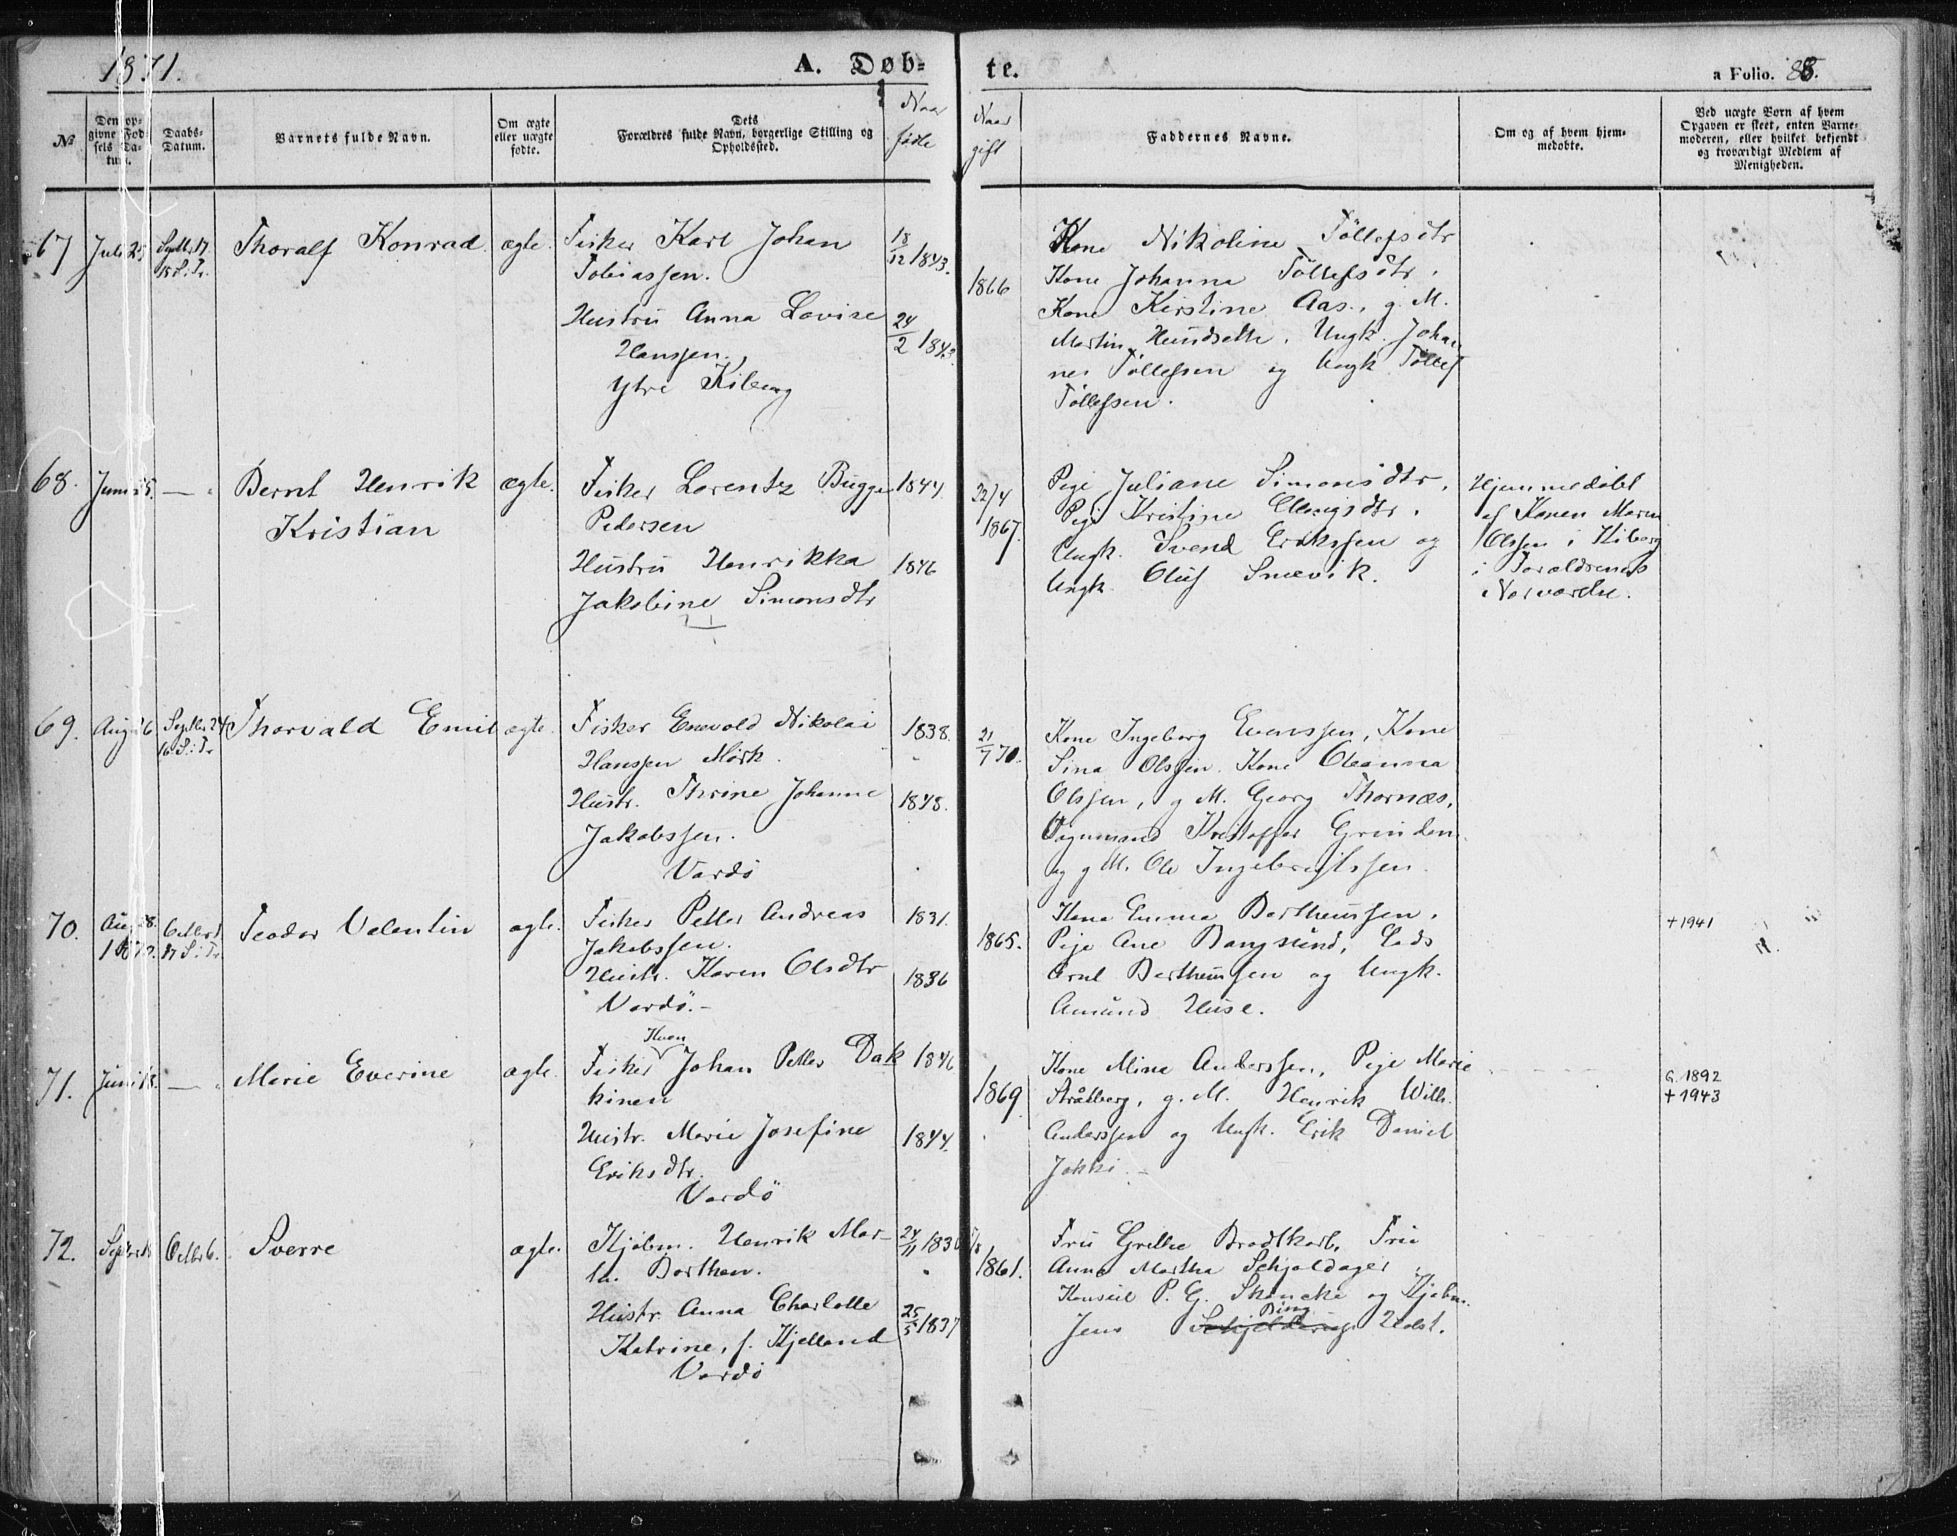 1871.
A. Døb-
te.
a Folio. 85.
№
Den op-
givne Fød-
sels Da-
tum.
Daabs-
Datum.
Barnets fulde Navn.
Om ægte
eller uægte
fødte.
Dets
Forældres fulde Navn, borgerlige Stilling og
Opholdssted.
Naar
fødte
Naar
gift
Faddernes Navne.
Om og af hvem hjem-
medøbte.
Ved uægte Børn af hvem
Opgaven er skeet, enten Barne-
moderen, eller hvilket bekjendt
og troværdigt Medlem af
Menigheden.
67
Juli 25
Septbr 17
15 S. Tr.
Thoralf Konrad
ægte.
Fisker Karl Johan
Tobiassen.
Hustru Anna Lovise
Hanssen.
Ytre Kiberg
18/12 1843.
24/2 1843
1866
Kone Nikoline Tøllefsdtr
Kone Johanna Tøllefsdtr.
Kone Kirstine Aas., g. M.
Martin Hundseth. Ungk. Johan
nes Tøllefsen og Ungk Tøllef
Tøllefsen.
68.
Juni
—
Bernt Henrik
Kristian
ægte.
Fisker Lorentz Bugge
Pedersen
Hustru Henrikka
Jakobine Simonsdtr
1844.
1846
22/4
1867.
Pige Juliane Simonsdtr.
Pige Kristine
Ungk. Svend Erikssen og
Ungk. Oluf Snævik.
Hjemmedøbt
af Konen Maren
Olssen i Kiberg
i Forældrenes
Nærværelse.
69.
Aug
Septbr 24
16 S. Tr
Thorvald Emil
ægte.
Fisker Enevold Nikolai
Hanssen Mørk.
Hustr. Thrine Johanne
Jakobssen.
Vardø
1838.
1848.
21/7 70.
Kone Ingeborg Evenssen, Kone
Sina Olssen. Kone Oleanna
Olssen, g M. Georg Thornæs,
Kristoffer Grinden
og g M. Ole Ingebrigtssen.
70.
Aug
Octbr 1
17 S. Tr
Teodor Valentin
ægte.
Fisker Petter Andreas
Jakobssen.
Hustr. Karen Olsdtr
Vardø.—
1831.
1836
1865.
Kone Emma Bertheussen.
Pige Ane Bangsund,
Arnt Bertheussen og Ungk.
Amund Huse.
+ 1941
71.
Juni
—
Marie Everine
ægte.
Fisker Kvæn Johan Petter Dak
kinen
Hustr. Marie Josefine
Eriksdtr.
Vardø
1846
1844.
1869
Kone Mina Anderssen, Pige Marie
Stråtberg, g. M. Henrik Wilh.
Anderssen og Ungk. Erik Daniel
Jokki.—
G. 1892
+ 1943
72.
Octbr 6.
Sverre
ægte.
Kjøbm. Henrik Mar-
Borthen.
Hustr. Anna Charlotte
Katrine, f. Kjelland
Vardø
24/11 1830
25/5 1837
1861.
Fru Grethe Brodtkorb, Fru
Anne Martha Schjoldager
Konsul P. G. Skancke og Kjøbm.
Jens Bing Holst.